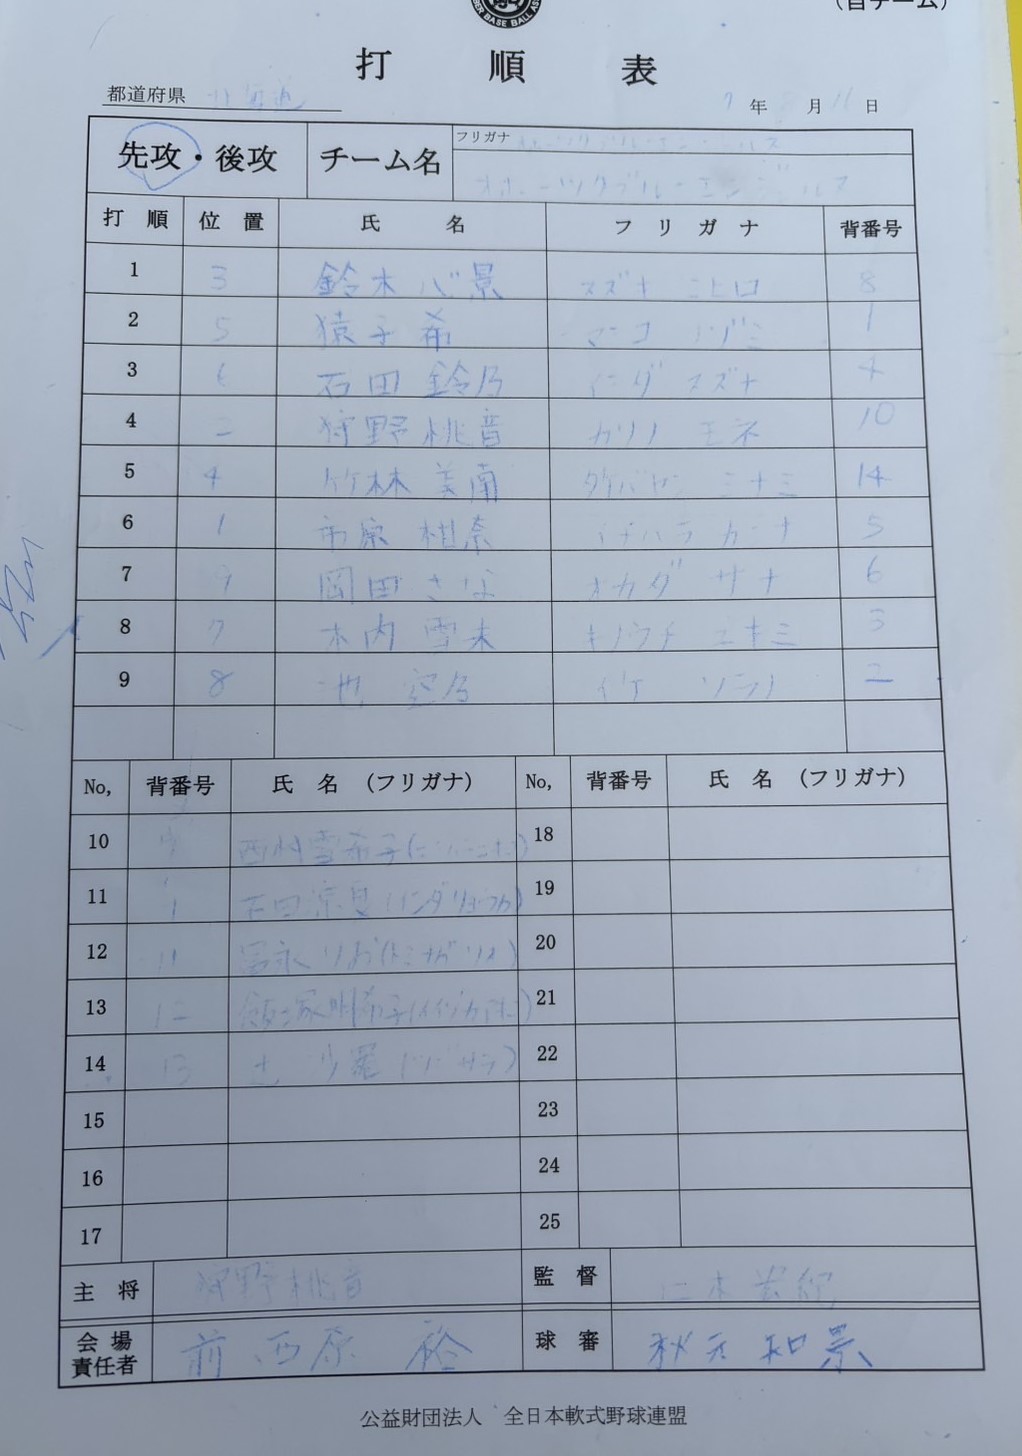 BER BASE BALL AS
(自チーム)
打順表
都道府県 北海道 7年 月 11日
先攻・後攻 チーム名 フリガナ オホーツクブルーエンジェルス
オホーツクブルーエンジェルス
打順 位置 氏名 フリガナ 背番号
1 3 鈴木 心景 スズキ ニヒロ 8
2 5 猿子 希 マシコ ノゾミ 1
3 6 石田 鈴乃 イシダ スズナ 4
4 二 狩野 桃音 カリノ モネ 10
5 4 竹林 美南 タケバヤシ ミナミ 14
6 1 市原 柑奈 イチハラ カンナ 5
7 9 岡田 さな オカダ サナ 6
8 7 木内 雪未 キノウチ ユキミ 3
9 8 池 空乃 イケ ソラノ 2
No, 背番号 氏名 (フリガナ) No, 背番号 氏名 (フリガナ)
10 西村雪希子 18
11 石田涼夏(イシダリョウカ) 19
12 11 冨永りお(トミナガリオ) 20
13 12 飯塚明希子 21
14 13 辻 沙羅(ツジ サラ) 22
15 23
16 24
17 25
主将 狩野桃音 監督 仁木
会場責任者 前 西原 裕 球審 秋元 和景
公益財団法人 全日本軟式野球連盟